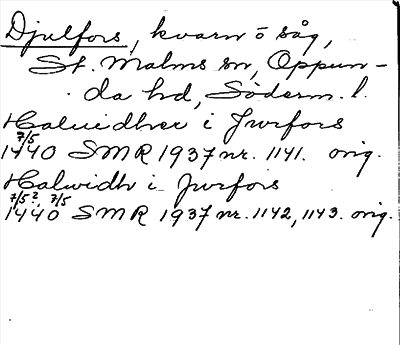 Djulfors, kvarn o såg,
St. Malms sn, Oppun-
da hd, Söderm. l.
Haluidher i Jwrfors
7/5
1440 SMR 1937 nr. 1141. orig.
Halwidh i Jurfors
7/5?, 7/5
1440 SMR 1937 nr. 1142, 1143. orig.